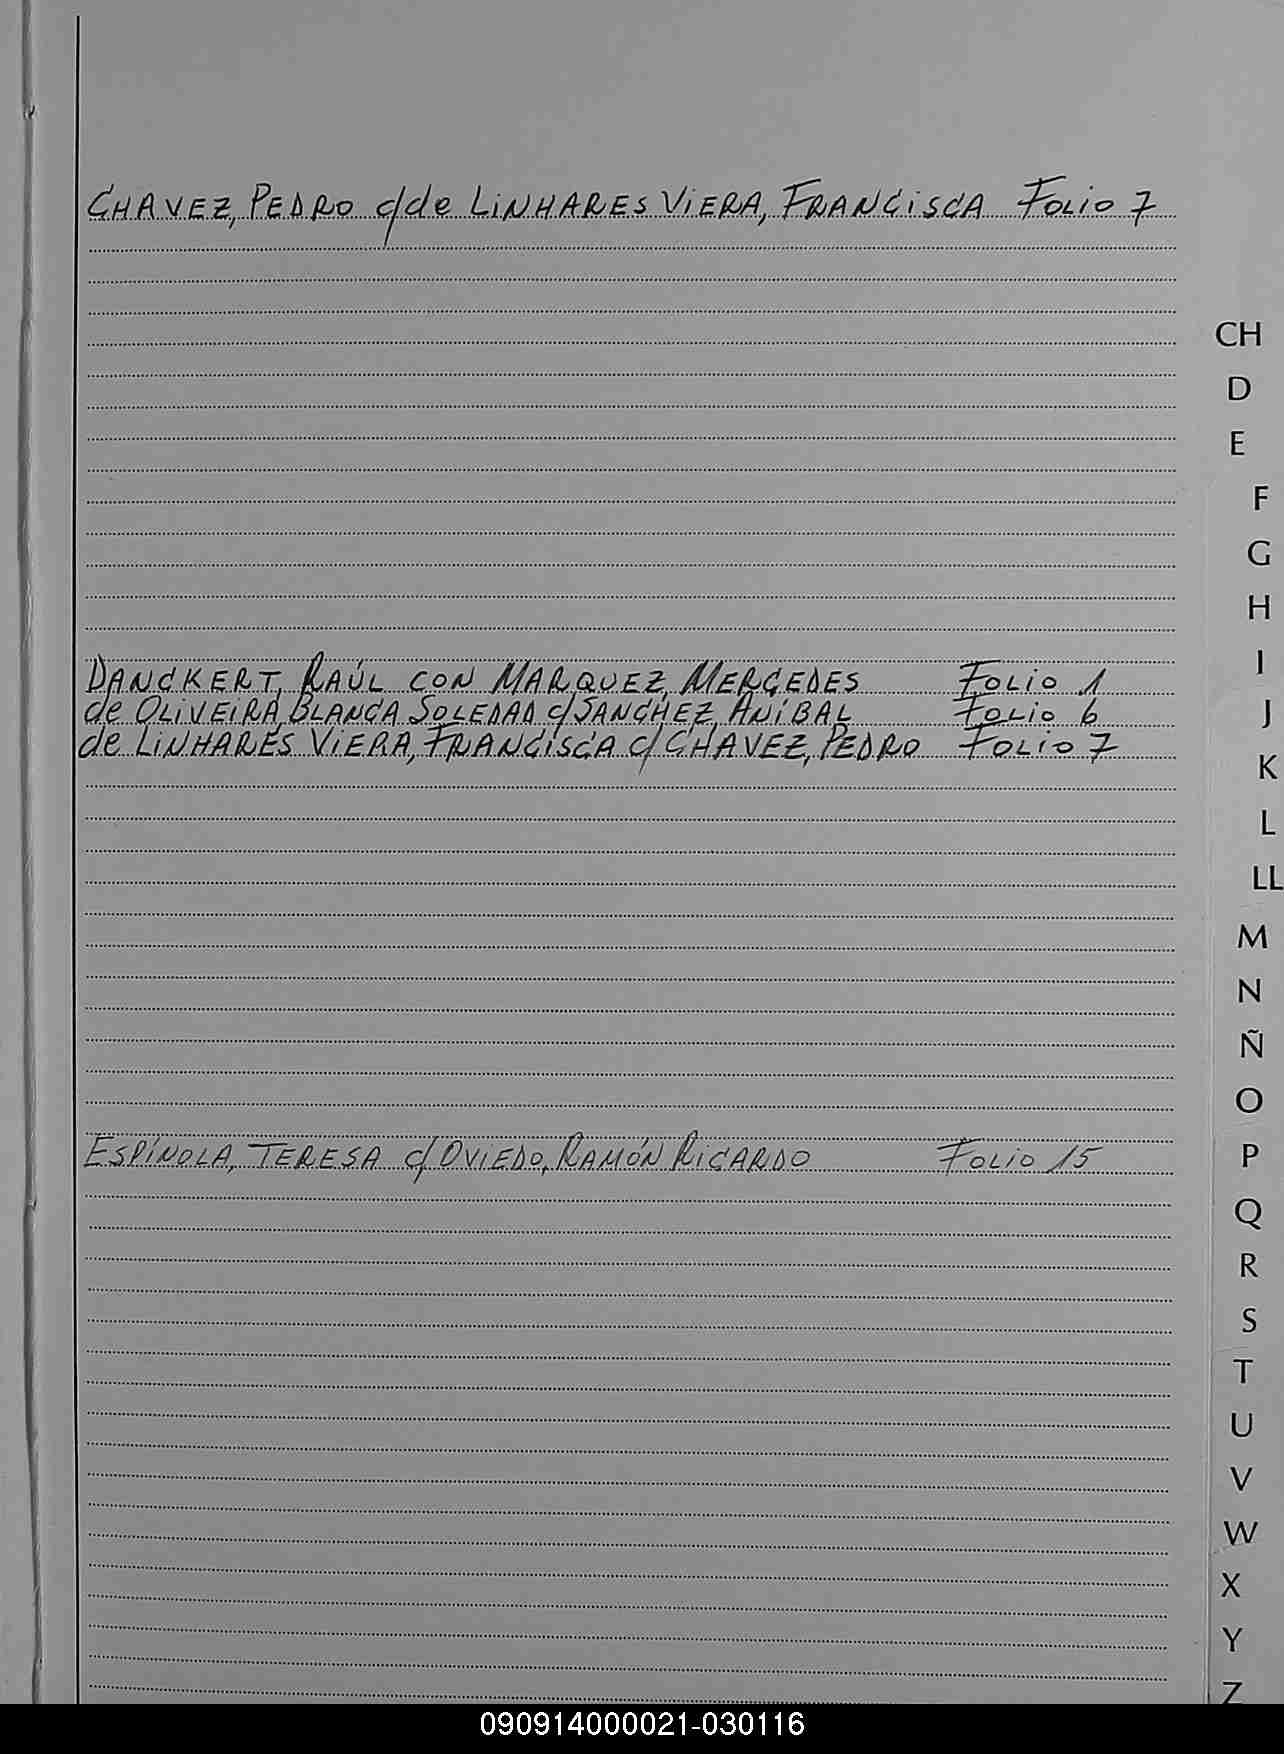 CHAVEZ, PEDRO c/de LINHARES VIERA, FRANCISCA Folio 7
CH
D
E
F
G
H
I
DANCKERT, RAÚL CON MARQUEZ, MERCEDES Folio 1
de OLIVEIRA, BLANCA SOLEDAD c/SANCHEZ, ANÍBAL Folio 6
de LINHARES VIERA, FRANCISCA c/ CHAVEZ, PEDRO Folio 7
J
K
L
LL
M
N
Ñ
O
ESPÍNOLA, TERESA c/ OVIEDO, RAMÓN RICARDO Folio 15
P
Q
R
S
T
U
V
W
X
Y
Z
090914000021-030116